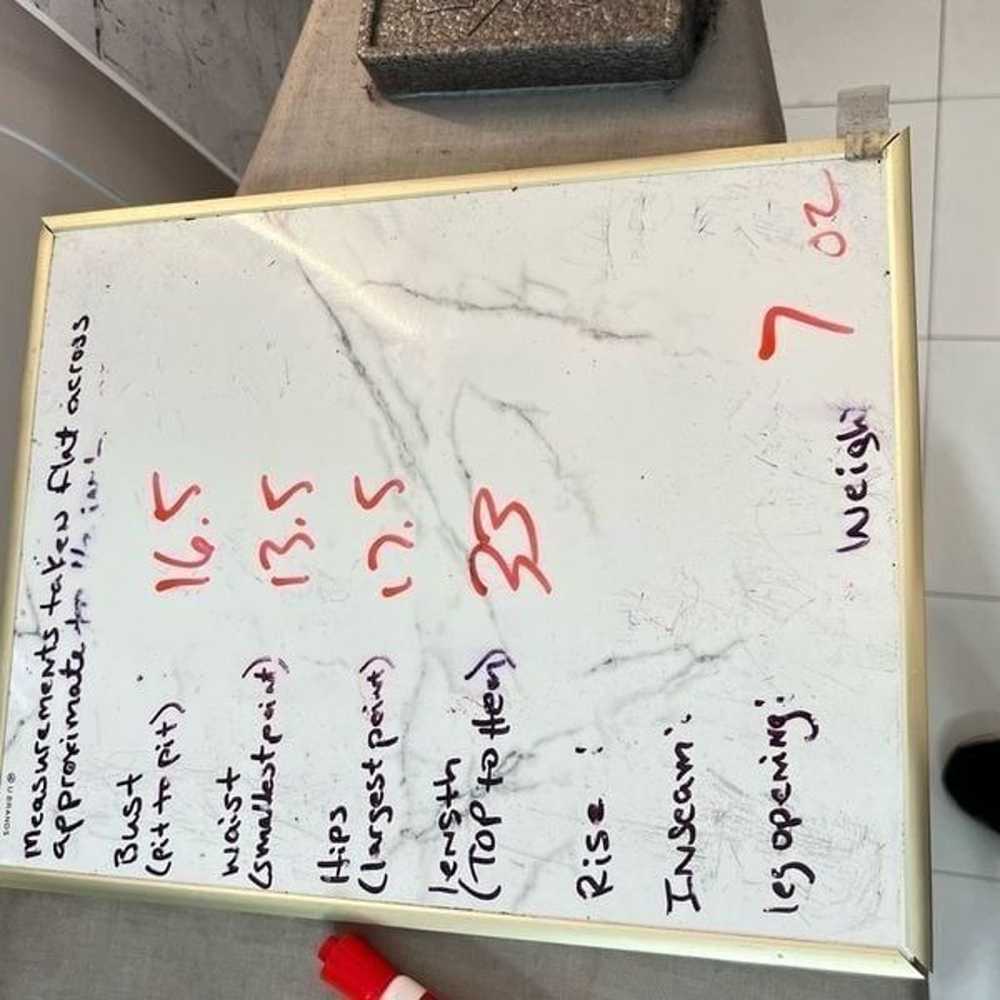 ® U BRANDS
Measurements taken flat across
approximate to
Bust 16.5
(pit to pit)
Waist 13.5
(smallest point)
Hips 17.5
(largest point)
length 33
(Top to Hem)
Rise:
Inseam:
leg opening:
Weight 7 oz